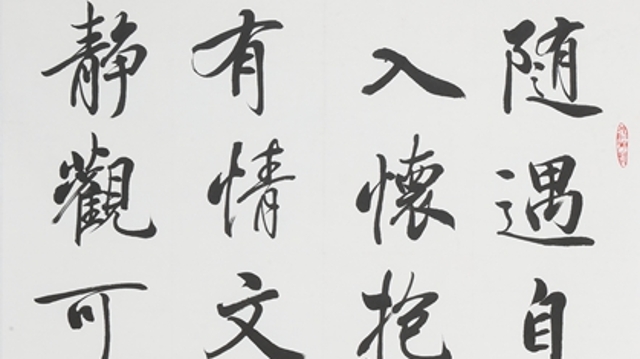 随遇自
入懷抱
有情文
静觀可